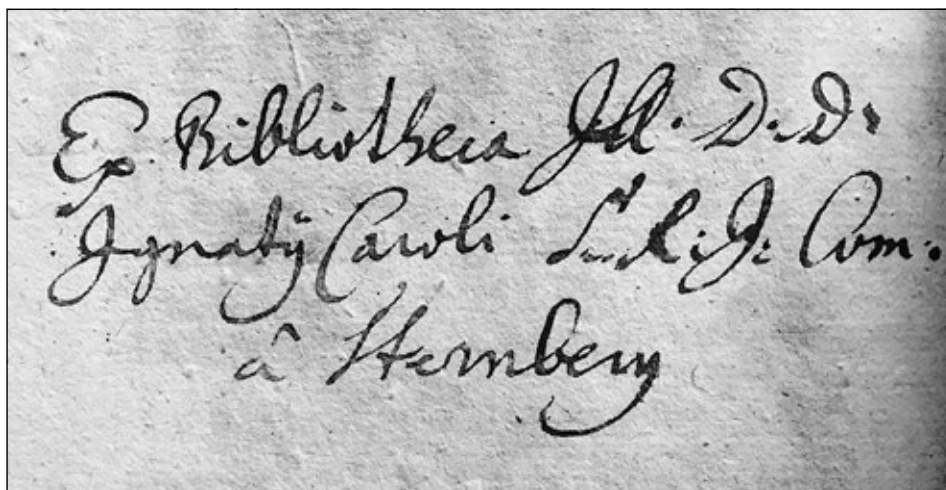 Ex Bibliotheca Ill. D. D.
Ignatÿ Caroli S. R. I. Com.
â Sternberg